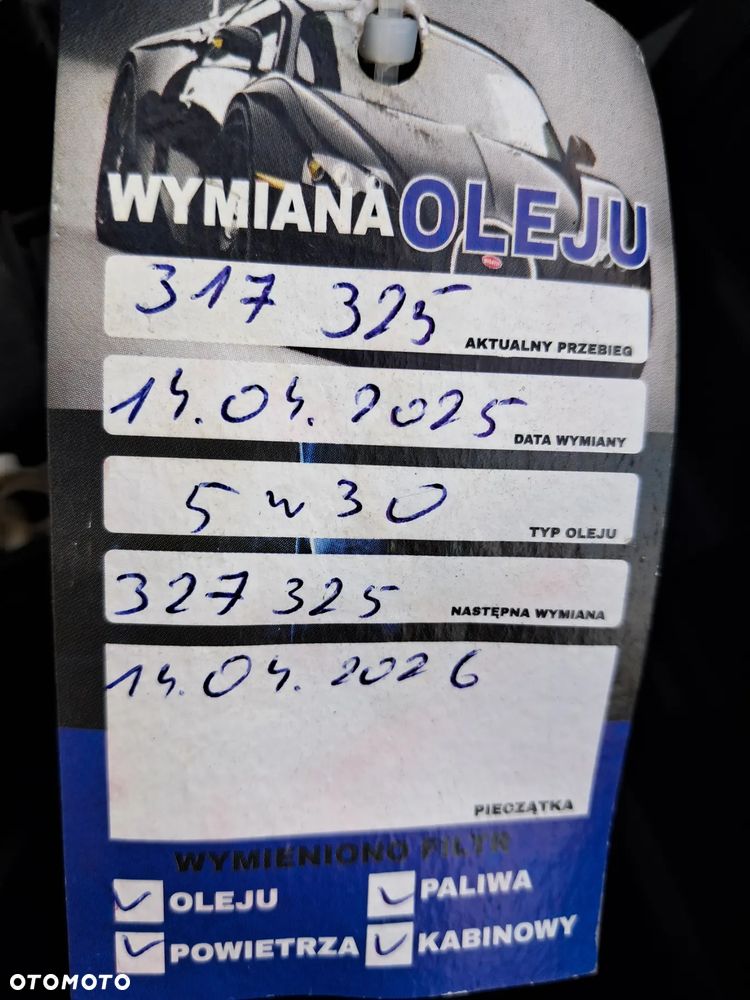 WYMIANA OLEJU
317 325 AKTUALNY PRZEBIEG
14.04.2025 DATA WYMIANY
5w30 TYP OLEJU
327 325 NASTĘPNA WYMIANA
14.04.2026
PIECZĄTKA
WYMIENIONO FILTR
OLEJU PALIWA
POWIETRZA KABINOWY
OTOMOTO